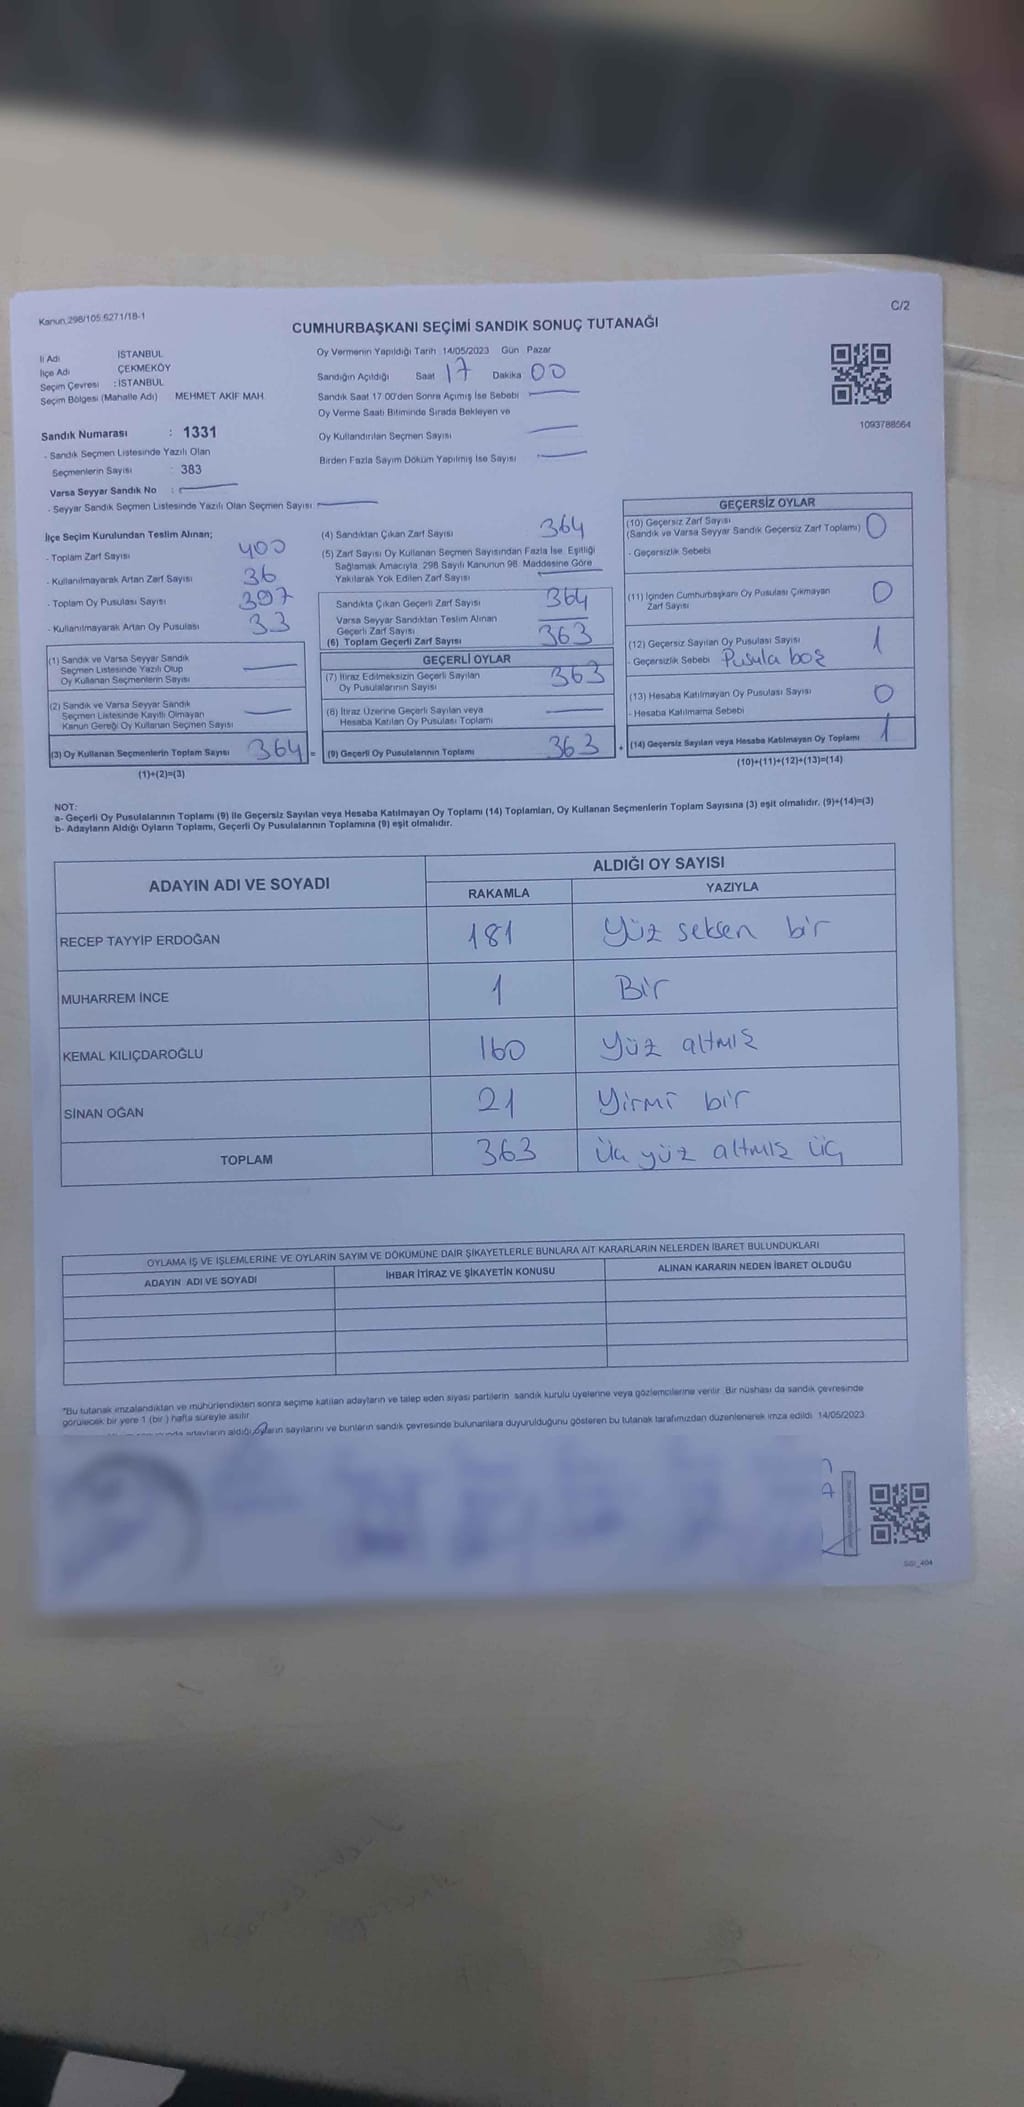 Kanun 298/105.6271/18-1
C/2
CUMHURBAŞKANI SEÇİMİ SANDIK SONUÇ TUTANAĞI
İl Adı İSTANBUL
İlçe Adı ÇEKMEKÖY
Seçim Çevresi : İSTANBUL
Seçim Bölgesi (Mahalle Adı) MEHMET AKİF MAH.
Sandık Numarası : 1331
- Sandık Seçmen Listesinde Yazılı Olan
Seçmenlerin Sayısı : 383
Varsa Seyyar Sandık No :
- Seyyar Sandık Seçmen Listesinde Yazılı Olan Seçmen Sayısı :
Oy Vermenin Yapıldığı Tarih 14/05/2023 Gün Pazar
Sandığın Açıldığı Saat 17 Dakika 00
Sandık Saat 17 00'den Sonra Açımış İse Sebebi
Oy Verme Saati Bitiminde Sırada Bekleyen ve
Oy Kullandırılan Seçmen Sayısı
Birden Fazla Sayım Döküm Yapılmış İse Sayısı
1093788564
İlçe Seçim Kurulundan Teslim Alınan;
- Toplam Zarf Sayısı 400
- Kullanılmayarak Artan Zarf Sayısı 36
- Toplam Oy Pusulası Sayısı 397
- Kullanılmayarak Artan Oy Pusulası 33
(1) Sandık ve Varsa Seyyar Sandık
Seçmen Listesinde Yazılı Olup
Oy Kullanan Seçmenlerin Sayısı
(2) Sandık ve Varsa Seyyar Sandık
Seçmen Listesinde Kayıtlı Olmayan
Kanun Gereği Oy Kullanan Seçmen Sayısı
(3) Oy Kullanan Seçmenlerin Toplam Sayısı 364 =
(1)+(2)=(3)
(4) Sandıktan Çıkan Zarf Sayısı 364
(5) Zarf Sayısı Oy Kullanan Seçmen Sayısından Fazla İse Eşitliği
Sağlamak Amacıyla 298 Sayılı Kanunun 98. Maddesine Göre
Yakılarak Yok Edilen Zarf Sayısı
Sandıkta Çıkan Geçerli Zarf Sayısı 364
Varsa Seyyar Sandıktan Teslim Alınan
Geçerli Zarf Sayısı
(6) Toplam Geçerli Zarf Sayısı 363
GEÇERLİ OYLAR
(7) İtiraz Edilmeksizin Geçerli Sayılan
Oy Pusulalarının Sayısı 363
(8) İtiraz Üzerine Geçerli Sayılan veya
Hesaba Katılan Oy Pusulası Toplamı
(9) Geçerli Oy Pusulalarının Toplamı 363 +
GEÇERSİZ OYLAR
(10) Geçersiz Zarf Sayısı
(Sandık ve Varsa Seyyar Sandık Geçersiz Zarf Toplamı) 0
- Geçersizlik Sebebi
(11) İçinden Cumhurbaşkanı Oy Pusulası Çıkmayan
Zarf Sayısı 0
(12) Geçersiz Sayılan Oy Pusulası Sayısı 1
- Geçersizlik Sebebi Pusula boş
(13) Hesaba Katılmayan Oy Pusulası Sayısı 0
- Hesaba Katılmama Sebebi
(14) Geçersiz Sayılan veya Hesaba Katılmayan Oy Toplamı 1
(10)+(11)+(12)+(13)=(14)
NOT:
a- Geçerli Oy Pusulalarının Toplamı (9) ile Geçersiz Sayılan veya Hesaba Katılmayan Oy Toplamı (14) Toplamları, Oy Kullanan Seçmenlerin Toplam Sayısına (3) eşit olmalıdır. (9)+(14)=(3)
b- Adayların Aldığı Oyların Toplamı, Geçerli Oy Pusulalarının Toplamına (9) eşit olmalıdır.
ADAYIN ADI VE SOYADI ALDIĞI OY SAYISI
RAKAMLA YAZIYLA
RECEP TAYYİP ERDOĞAN 181 Yüz seksen bir
MUHARREM İNCE 1 Bir
KEMAL KILIÇDAROĞLU 160 Yüz altmış
SİNAN OĞAN 21 Yirmi bir
TOPLAM 363 Üç yüz altmış üç
OYLAMA İŞ VE İŞLEMLERİNE VE OYLARIN SAYIM VE DÖKÜMÜNE DAİR ŞİKAYETLERLE BUNLARA AİT KARARLARIN NELERDEN İBARET BULUNDUKLARI
ADAYIN ADI VE SOYADI İHBAR İTİRAZ VE ŞİKAYETİN KONUSU ALINAN KARARIN NEDEN İBARET OLDUĞU
"Bu tutanak imzalandıktan ve mühürlendikten sonra seçime katılan adayların ve talep eden siyasi partilerin sandık kurulu üyelerine veya gözlemcilerine verilir. Bir nüshası da sandık çevresinde
görülecek bir yere 1 (bir) hafta süreyle asılır.
adayların aldığı oyların sayılarını ve bunların sandık çevresinde bulunanlara duyurulduğunu gösteren bu tutanak tarafımızdan düzenlenerek imza edildi. 14/05/2023